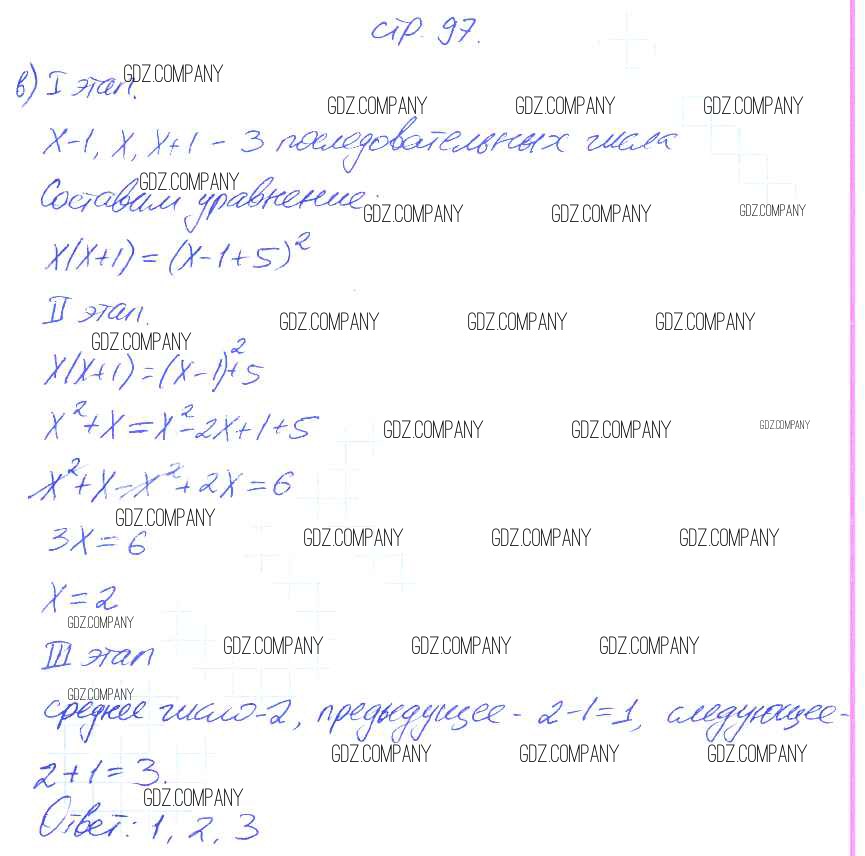 стр. 97.
в) I этап.
x-1, x, x+1 - 3 последовательных числа
Составим уравнение:
x(x+1) = (x-1+5)²
II этап.
x(x+1) = (x-1)²+5
x²+x = x²-2x+1+5
x²+x-x²+2x = 6
3x = 6
x = 2
III этап
среднее число-2, предыдущее - 2-1=1, следующее-
2+1=3.
Ответ: 1, 2, 3
GDZ.COMPANY
GDZ.COMPANY GDZ.COMPANY GDZ.COMPANY
GDZ.COMPANY
GDZ.COMPANY GDZ.COMPANY GDZ.COMPANY
GDZ.COMPANY GDZ.COMPANY GDZ.COMPANY
GDZ.COMPANY
GDZ.COMPANY GDZ.COMPANY GDZ.COMPANY
GDZ.COMPANY
GDZ.COMPANY GDZ.COMPANY GDZ.COMPANY
GDZ.COMPANY
GDZ.COMPANY GDZ.COMPANY GDZ.COMPANY
GDZ.COMPANY
GDZ.COMPANY GDZ.COMPANY GDZ.COMPANY
GDZ.COMPANY